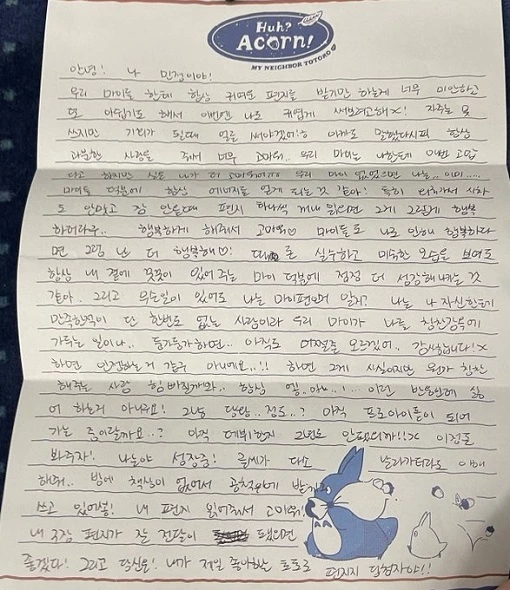 Huh?
Acorn!
MY NEIGHBOR TOTORO
안녕! 나 민정이야!
우리 마이들 한테 항상 귀여운 편지를 받기만 하는게 너무 미안하고
또 아쉽기도 해서 이번엔 나도 귀엽게 써보려고해×! 자주는 못
쓰지만 기회가 될때 얼른 써야겠어!ㅎ 아까도 말했다시피 항상
과분한 사랑을 줘서 너무 고마워.. 우리 마이는 나한테 이번 고맙
다고 하지만 실은 내가 더 고마워!! 우리 마이 없었으면 나는.. 이미.....
마이들 덕분에 항상 에너지를 얻게 되는것 같아! 특히 외국가서 시차
도 안맞고 잠 안올때 편지 하나씩 꺼내 읽으면 그게 그렇게 행복
하더라구.. 행복하게 해줘서 고마워 마이들도 나로 인해 행복하다
면 그럼 난 더 행복해♡! 때로 실수하고 미숙한 모습을 보여도
항상 내 곁에 꿋꿋이 있어주는 마이 덕분에 점점 더 성장해나가는 것
같아. 그리고 무슨일이 있어도 나는 마이편인거 알지? 나는 나 자신한테
만족한적이 단 한번도 없는 사람이라 우리 마이가 나를 칭찬감옥에
가두는 일이나.. 둥가둥가하면.. 아직도 어쩔줄 모르겠어.. 감사합니다!×
하면 인정하는거 같구 아니에요..!! 하면 그게 사실이지만 뭔가 칭찬
해주는 사람 힘빠질까봐.. 항상 엥..아ㄴ..!... 이런 반응인데 싫
어 하는거 아니구요! 그냥 당황..정도..? 아직 프로아이돌이 되어
가는 중이랄까요..? 아직 데뷔한지 2년도 안됐으니까!!× 이정돈
봐주라! 나날이 성장중! 글씨가 다소 날라가더라도 이해
해줘.. 밤에 책상이 없어서 공책위에 받쳐
쓰고 있어ㅎ! 내 편지 읽어줘서 고마워!
내 조감 편지가 잘 전달이 됐으면
좋겠다! 그리고 당신은! 내가 제일 좋아하는 토토로 편지지 당첨자야!!